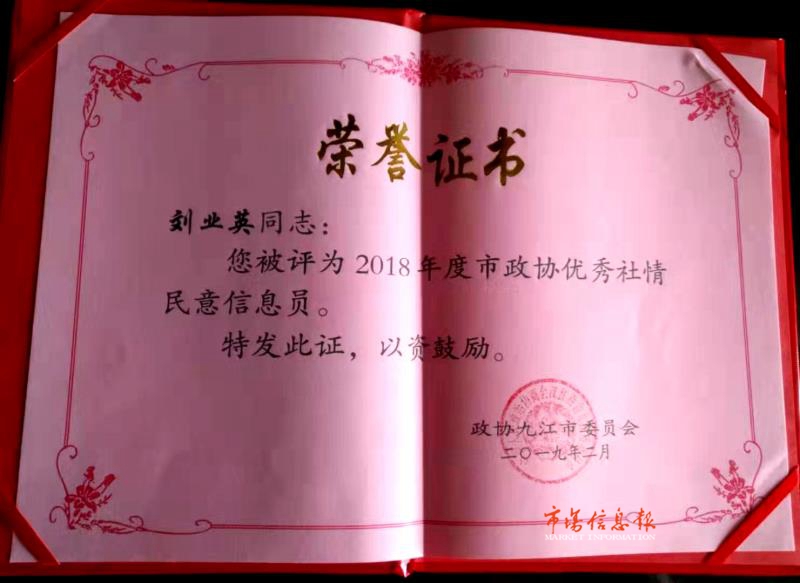 荣誉证书
刘业英同志：
您被评为2018年度市政协优秀社情
民意信息员。
特发此证，以资鼓励。
政协九江市委员会
二〇一九年二月
市场信息报
MARKET INFORMATION